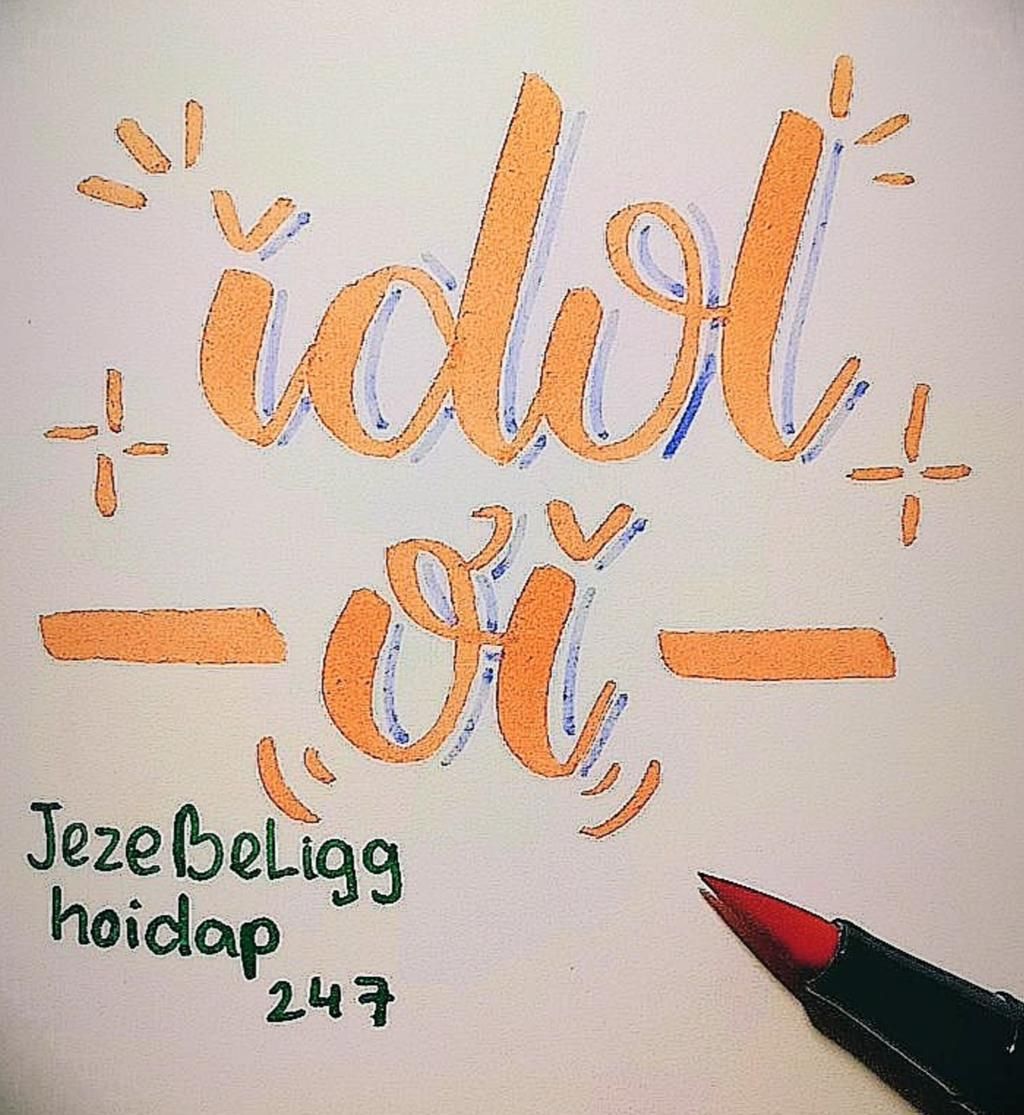 idol
ơi
JezeBeLigg
hoidap
247